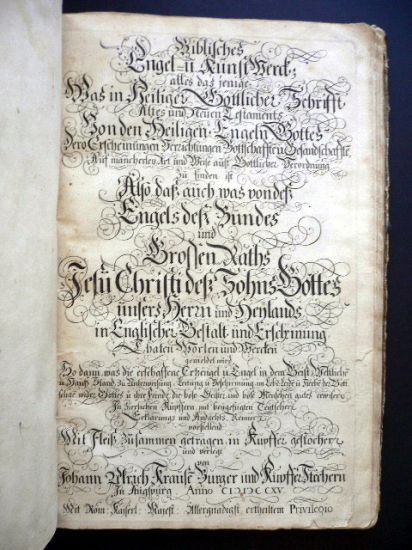 Biblisches
Engel- u Kunst Werck;
alles das jenige,
Was in Heiliger Göttlicher Schrifft
Altes und Neuen Testaments
Von den Heiligen Engeln Gottes
Dero Erscheinungen Verrichtungen Bottschafften Gesandschaffte
Auf mancherley Art und Weise auß Göttlicher Verordnung
Zu finden ist
Also daß auch was von deß
Engels deß Bundes
und
Grossen Raths
Jesu Christi deß Sohns Gottes
unsers Herrn und Heylands
in Englischer Gestalt und Erscheinung
Thaten Worten und Wercken
gemeldet wird
So dann was die erschaffene Ertzengel u Engel in dem Geist Weltliche
u Hauß Stand zu Unterweisung
wider Gottes u ihre Feinde die böse Geister und böse Menschen gutes erwiesen
In zierlichen Kupffern mit beygefügten Teutschen
Erklärungs und Andachts Reimen
vorstellend
Mit Fleiß Zusammen getragen in Kupffer gestochen
und verlegt
von
Johann Ulrich Krauß Burger und Kupffer Stechern
In Augspurg Anno CIↃIↃCCXV
Mit Röm: Kaiserl: Majest: Allergnädigst ertheiltem Privilegio